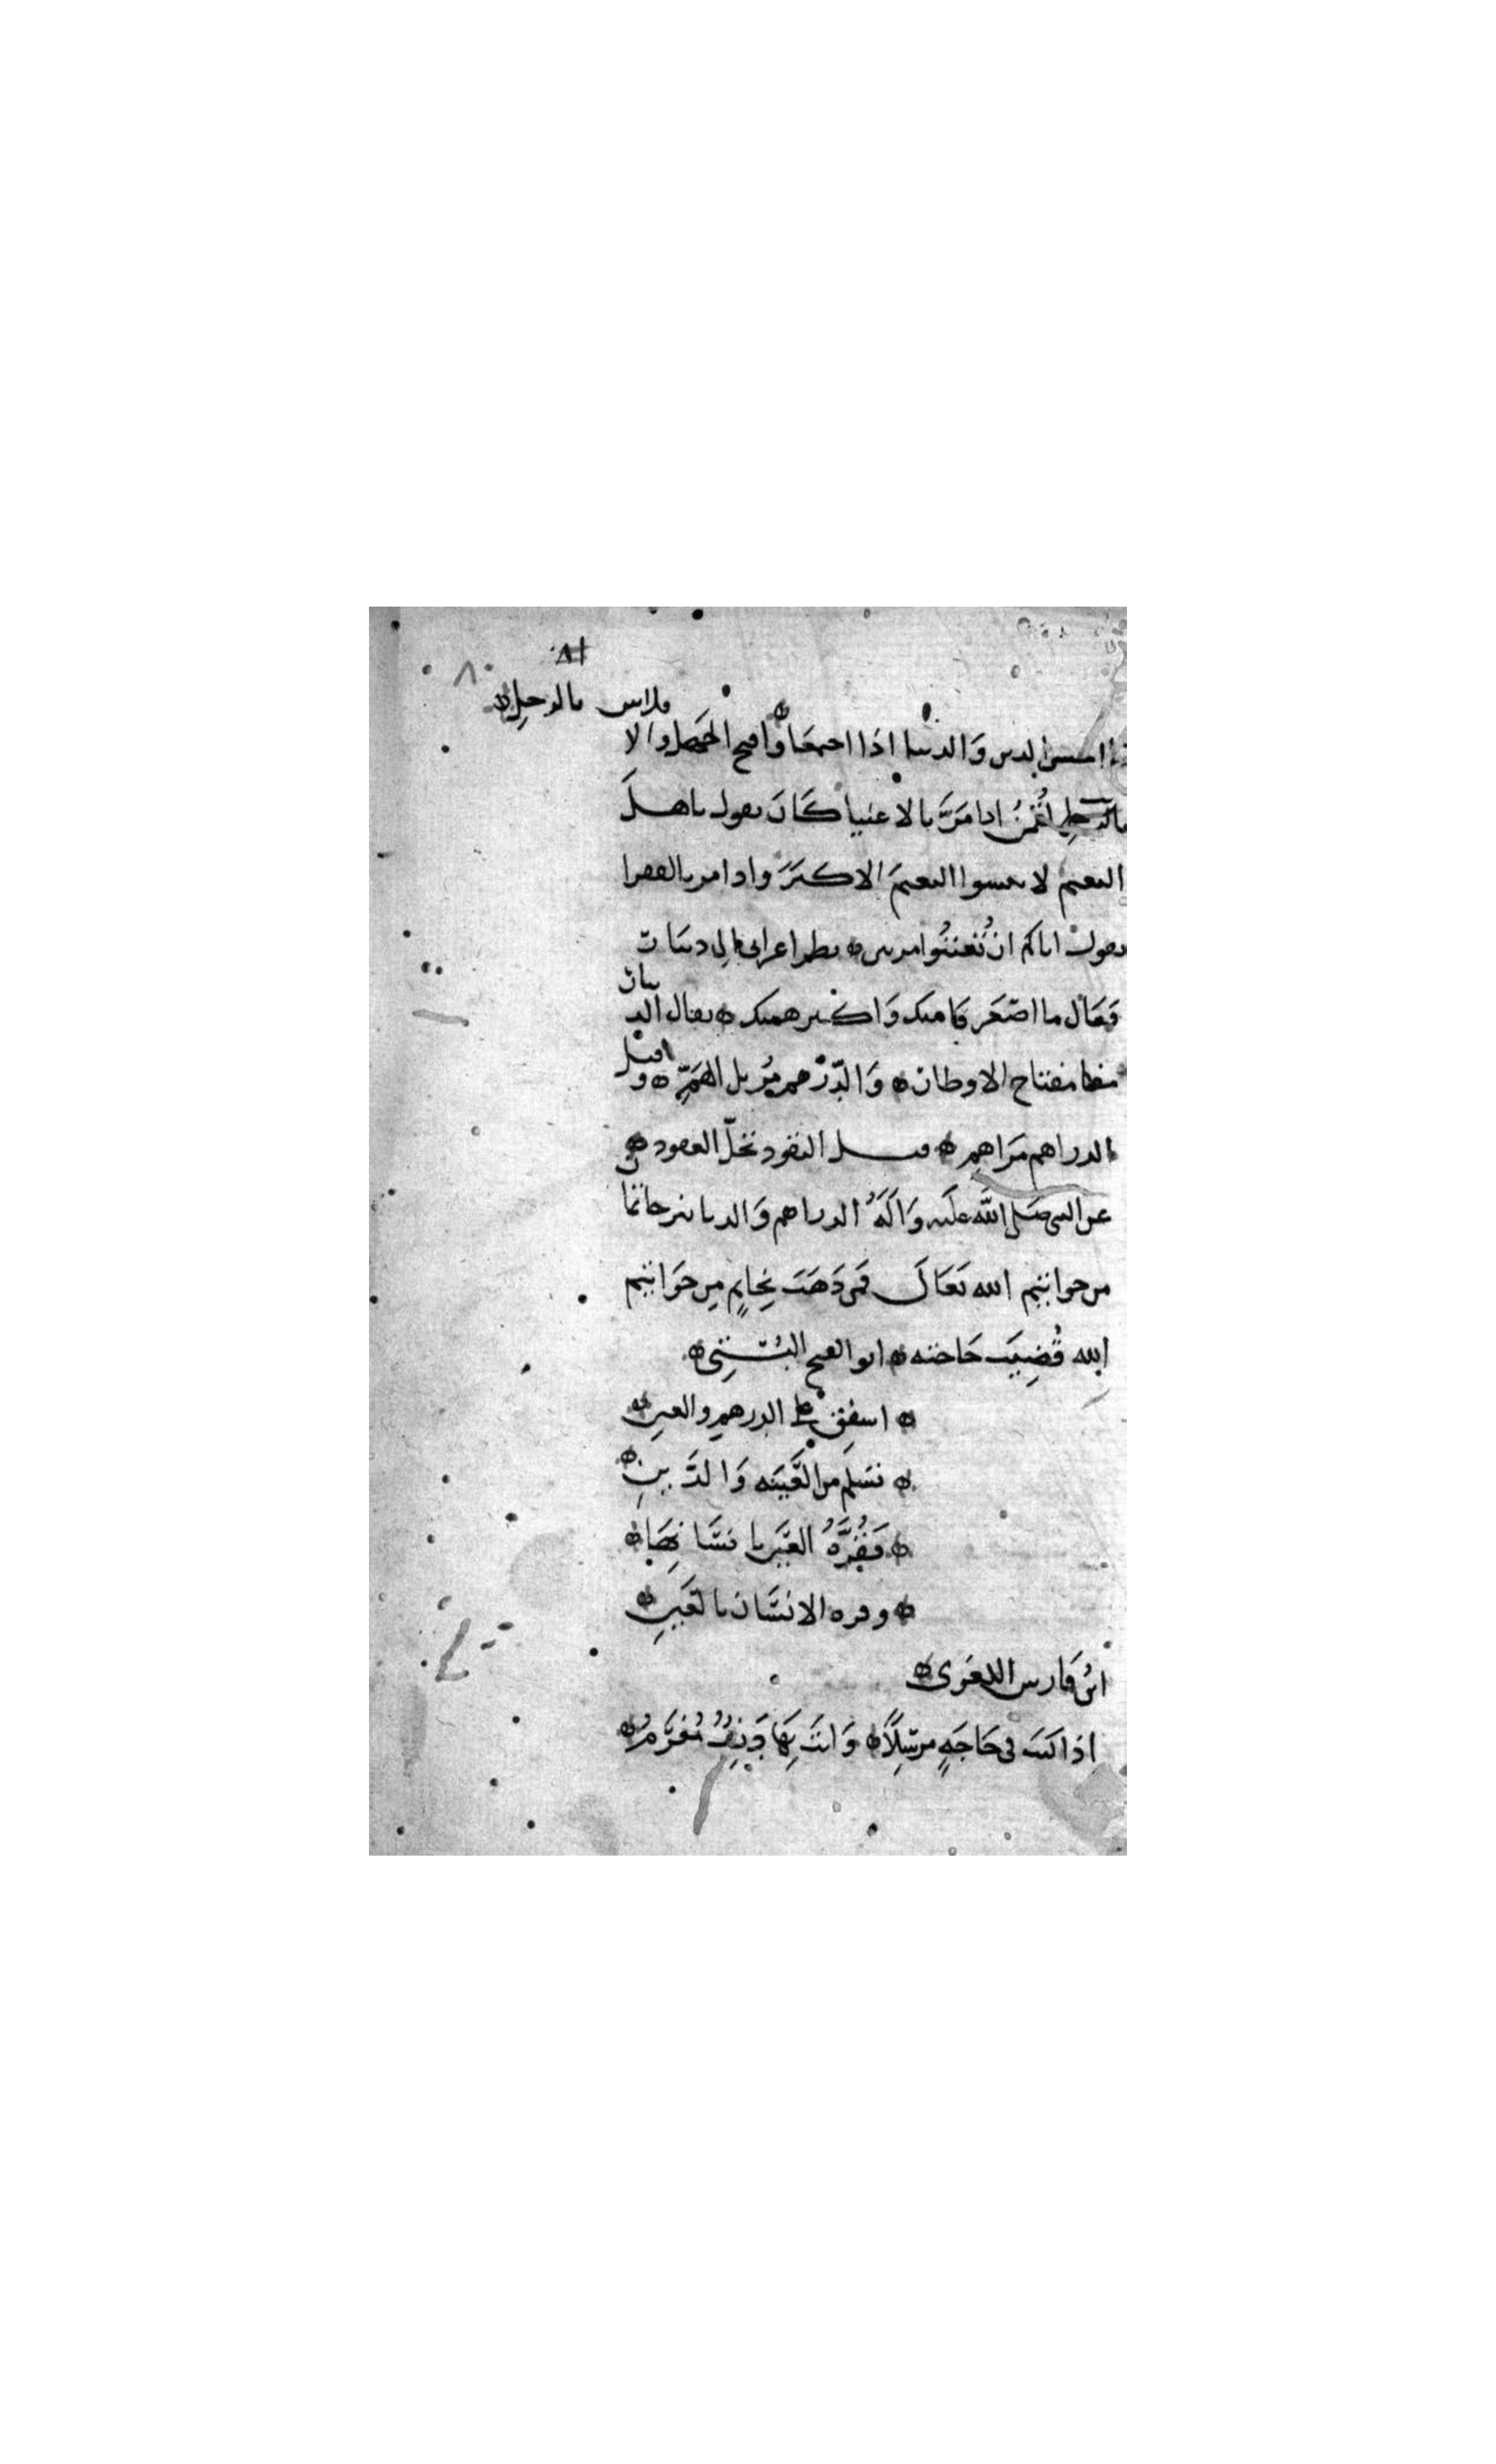 ٨١
٨٠
فلاس بالرجل
ما احسن الدين والدنيا اذا اجتمعا واقبح الجهل والا
بالرجل لقمن اذا مَرَّ بالاغنيا كَانَ يقول يا اهلَ
النعيم لا تنسوا النعيمَ الاكبَرَ واذا مر بالفقرا
يقول اياكم ان تُغبَنُوا مرتين نظر اعرابي الى دينَارٍ
فَقَال ما اصغَر قَامتك وَاكبر همتك يقال الد
ينار
مفتاح الاوطان وَالدِّرْهم مُزيل الهَمِّ و
قيل
الدراهم مَرَاهِم قيل النقود تحلّ العقود
عن النبي صَلى اللَّه عليه وَالَهُ الدراهم وَالدنانير خواتيم
من خواتيم الله تعَالَى فمن ذَهَبَ بِخاتِمٍ مِن خَوَاتيم
اللهِ قُضِيَت حَاجته ابو الفتح البُستِي
اشفق على الدرهم والعين
تسلم من العَيْنَه وَالدَّينِ
فَقُوَّةُ العَيْنِ بانسَانِهَا
وقوه الانسَان بالعَينِ
ابنُ فَارس اللغَوى
اذا كنتَ في حَاجَةٍ مرسِلًا وَانتَ بِهَا دَنِفٌ مُغرَمُ